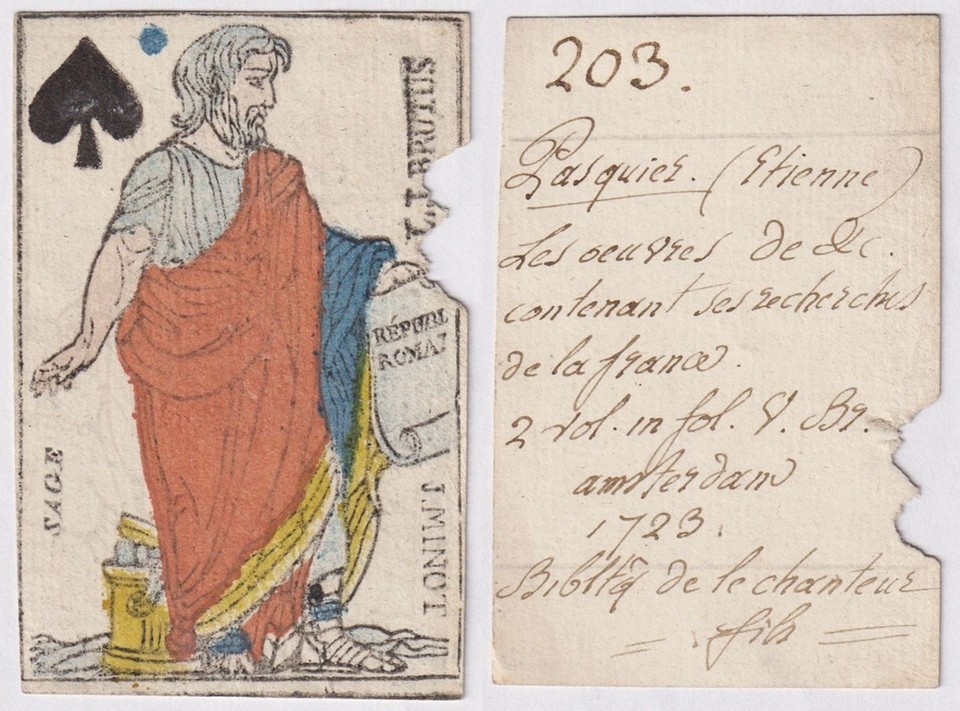 L. J. BRUTUS
RÉPUBL
ROMA
SAGE
J. MINOT
203.
Pasquier. (Etienne)
Les oeuvres de &c.
contenant ses recherches
de la france.
2 vol. in fol. V. Br.
amsterdam
1723.
Biblltq de le chanteur
fils